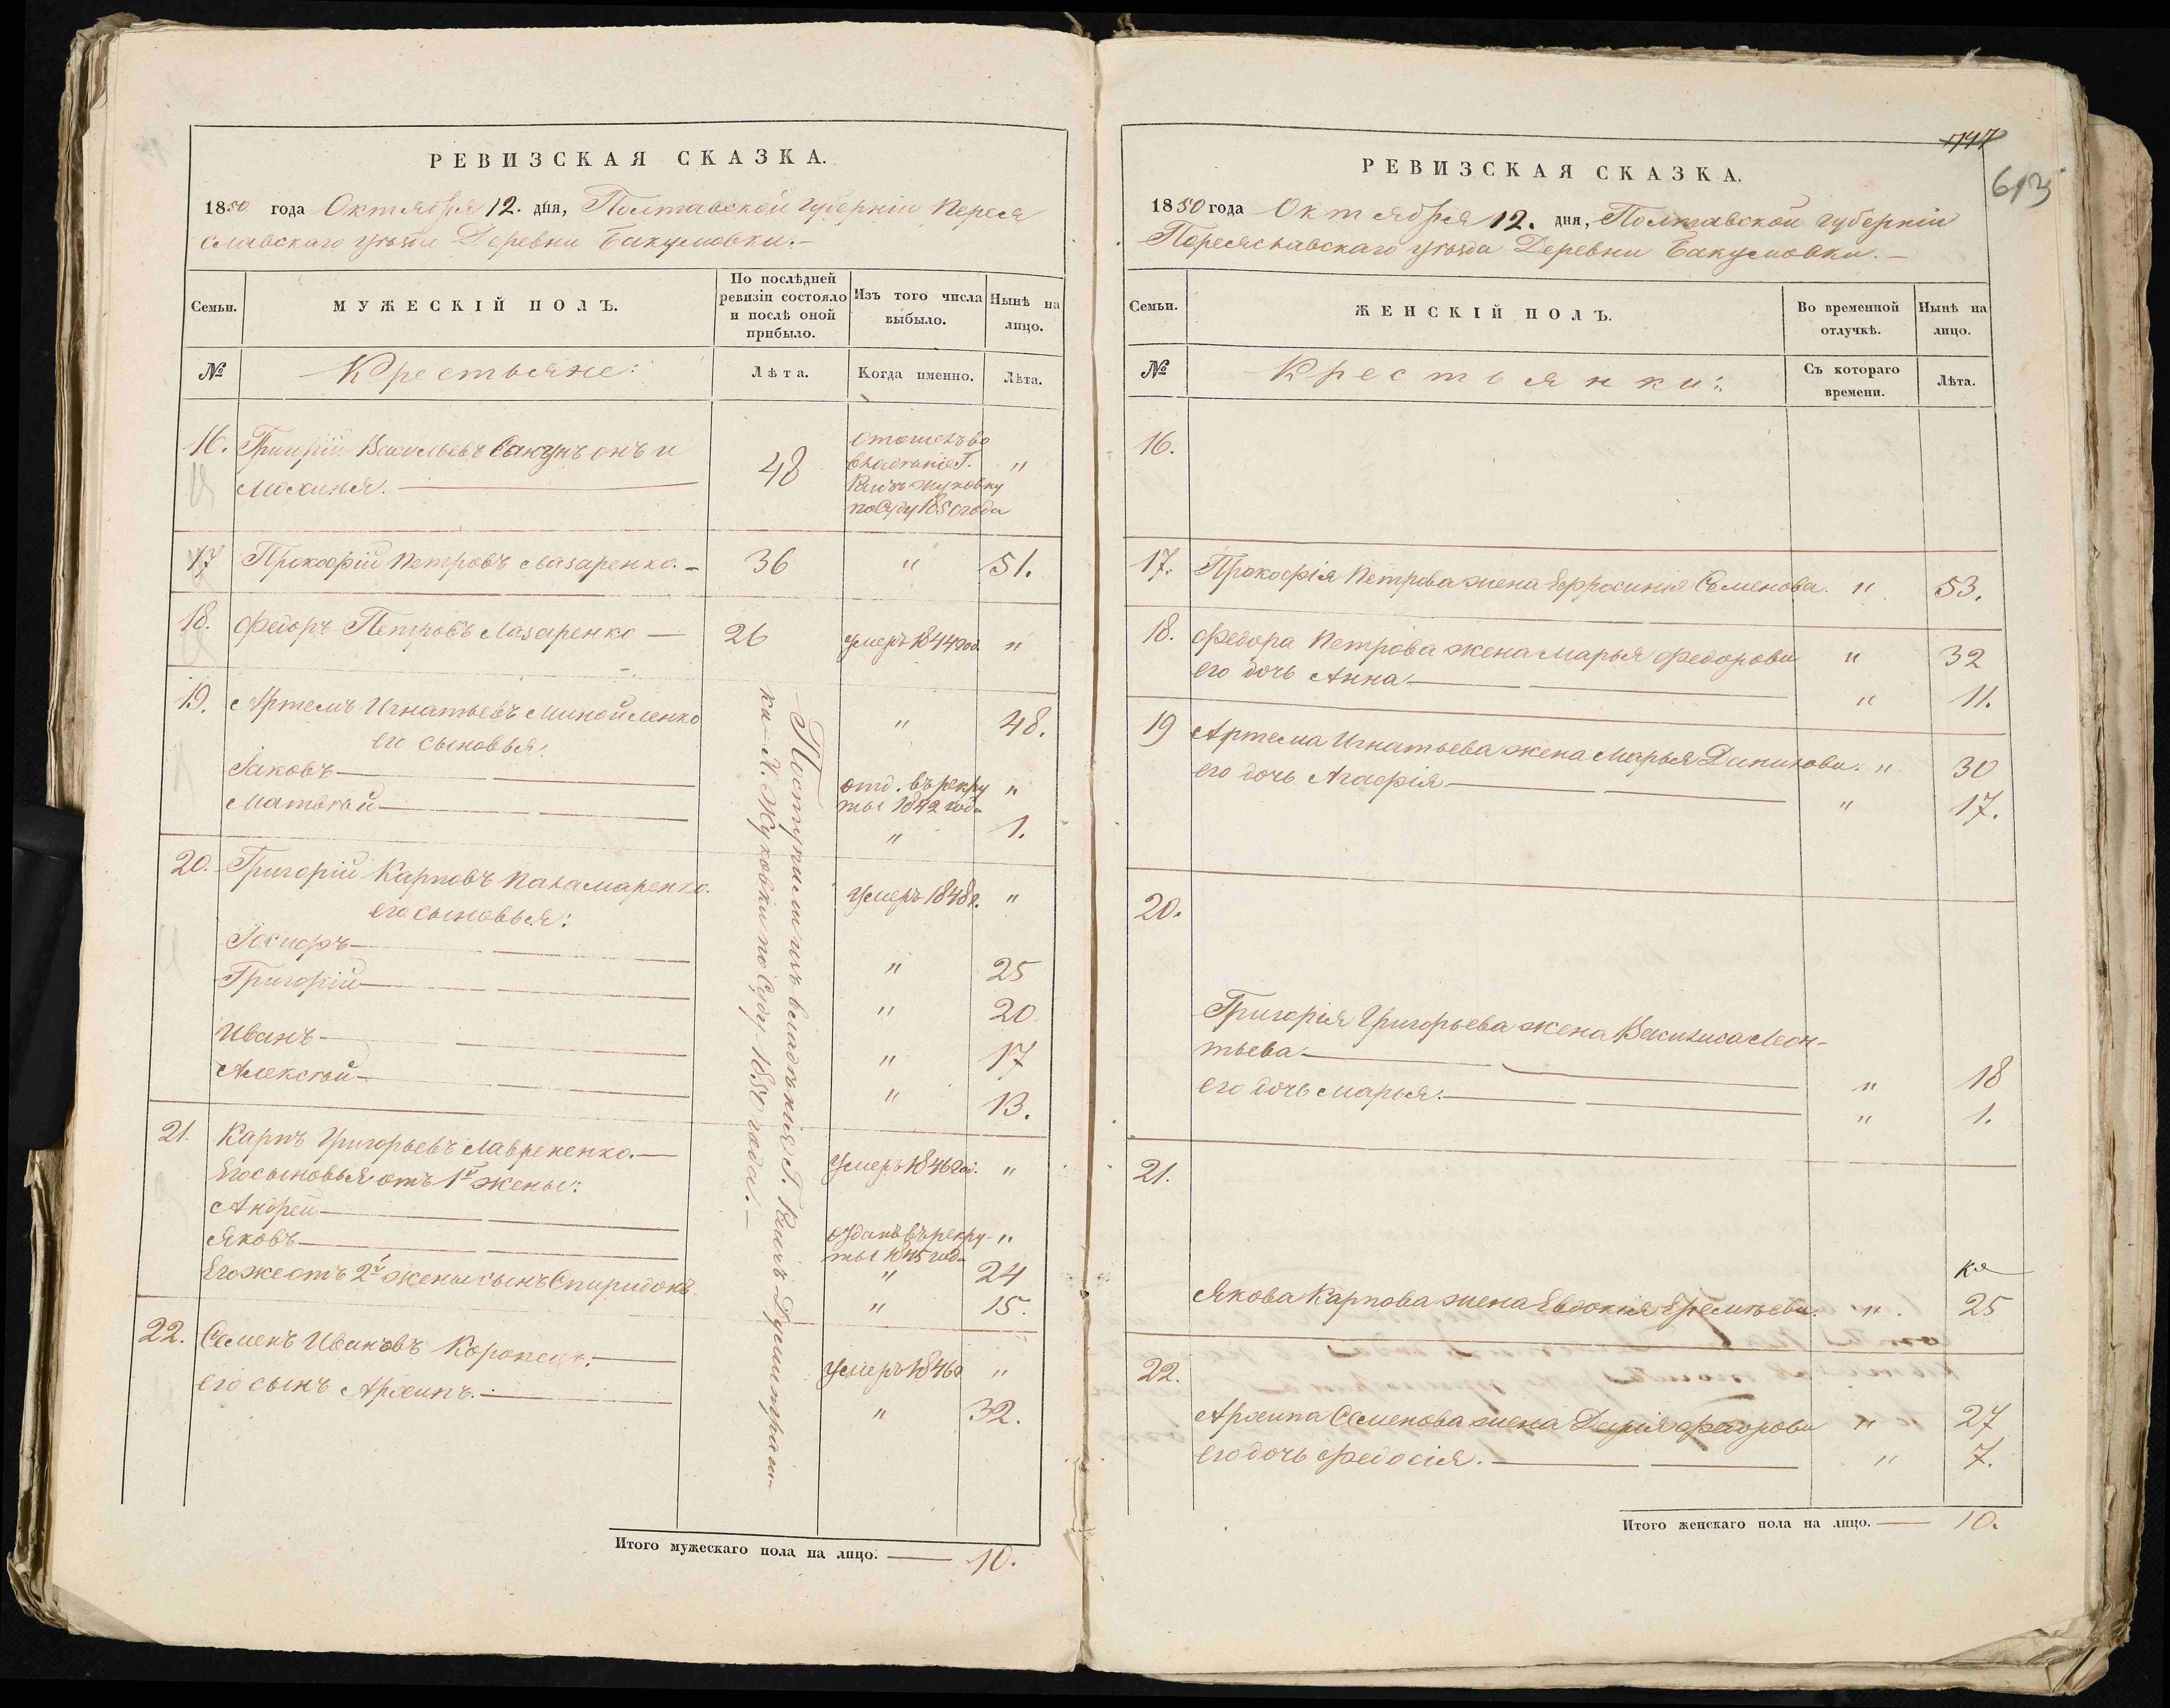 РЕВИЗСКАЯ СКАЗКА.
1850 года Октября 12. дня, Полтавской губерніи Перея
славскаго уѣзда Деревни Бакумовки.-
Семьи.
МУЖЕСКІЙ ПОЛЪ.
По послѣдней
ревизіи состояло
и послѣ оной
прибыло.
Изъ того числа
выбыло.
Нынѣ на
лицо.
№
Крестьяне:
Лѣта.
Когда именно.
Лѣта.
16. Григорій Васильевъ онъ и
Махиня. 48 "
по Суду 1850 года
17 Прокофій Петровъ Лазаренко.- 36 " 51.
18. Федоръ Петровъ Лазаренко — 26 умеръ 1844 год. "
19. Артемъ Игнатьевъ Минойленко " 48.
его сыновья:
Іаковъ— отд. въ рекру "
ты 1842 года
Матвѣй— " 1.
20. Григорій Карповъ Паламаренко. умеръ 1848 г. "
его сыновья:
Іосифъ— " 25
Григорій— " 20
Иванъ— " 17
Алексѣй— " 13.
21. Карпъ Григорьевъ Лаврененко.— Умеръ 1846 год. "
Его сыновья отъ 1й жены:
Андрей— отданъ въ рекру- "
ты 1845 года
Яковъ— " 24
Его же отъ 2й жены сынъ Спиридонъ " 15.
22. Семенъ Ивановъ Коропецъ.— умеръ 1846 "
его сынъ Архипъ.— " 32.
Поступили изъ владѣнія Г. Канъ Думитраш-
ки - Й. Жуковки по Суду 1850 года.—
Итого мужескаго пола на лицо. — 10.
747
613
РЕВИЗСКАЯ СКАЗКА.
1850 года Октября 12. дня, Полтавской губерніи
Переяславскаго уѣзда Деревни Бакумовки.—
Семьи.
ЖЕНСКІЙ ПОЛЪ.
Во временной
отлучкѣ.
Нынѣ на
лицо.
№
Крестьянки:
Съ котораго
времени.
Лѣта.
16.
17. Прокофія Петрова жена Ефросинія Семенова. " 53.
18. Федора Петрова жена Марья Федорова " 32
его дочь Анна— " 11.
19 Артема Игнатьева жена Марья Данилова. " 30
его дочь Агафія— " 17.
20.
Григорія Григорьева жена Василиса Леон-
тьева— " 18
его дочь Марья.— " 1.
21.
Якова Карпова жена Евдокія Еремѣева. " 25
22.
Архипа Семенова жена Дарія Федорова " 27
его дочь Федосія.— " 7.
Итого женскаго пола на лицо.— 10.